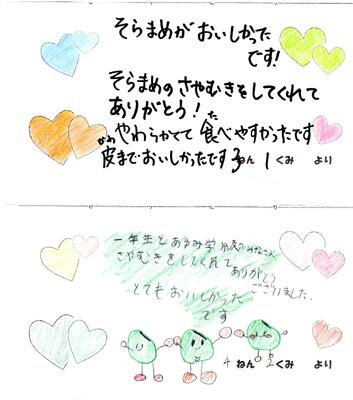 そらまめがおいしかった
です!
そらまめのさやむきをしてくれて
ありがとう!
やわらかくて食べやすかったです
皮までおいしかったです 3ねん 1くみ より
一年生とあゆみ学級のみなさん
さやむきをしてくれて
ありがとう
ございました。
とてもおいしかった
です
4ねん 2くみ より